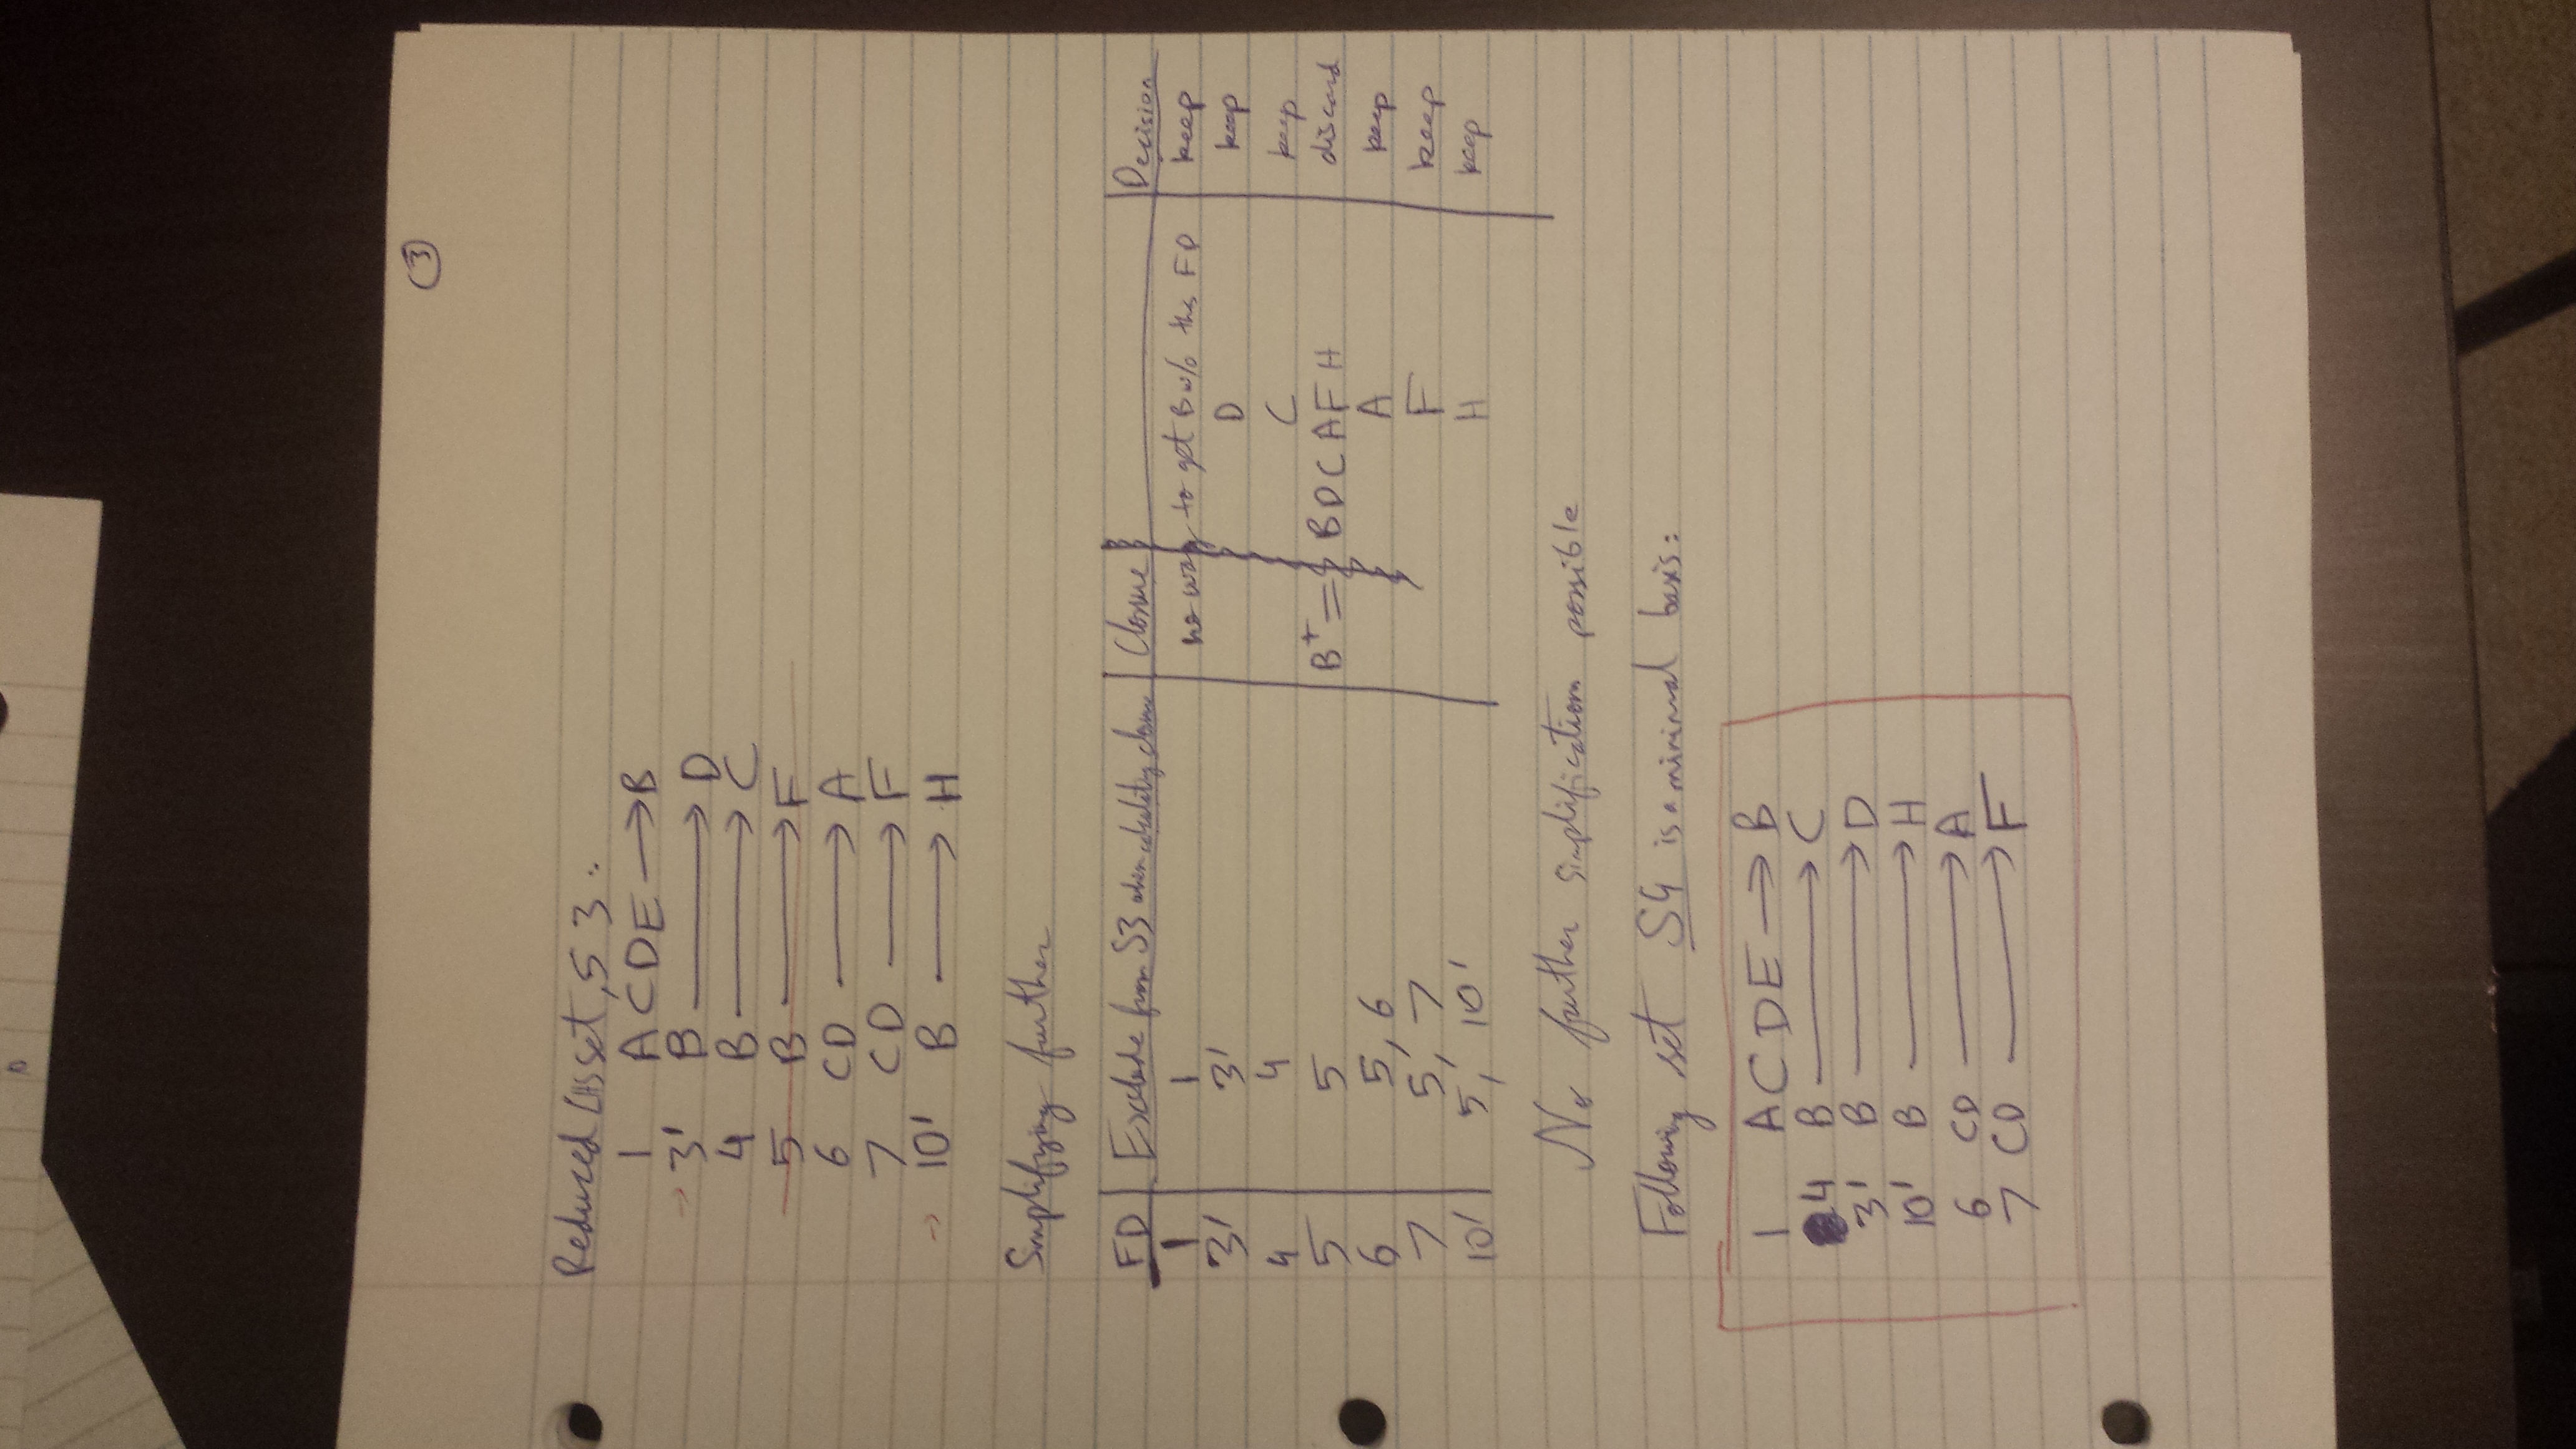 3
Reduced LHS set, S3:
1 ACDE → B
→ 3' B → D
4 B → C
5 B → F
6 CD → A
7 CD → F
→ 10' B → H
Simplifying further
FD Exclude from S3 when calculating closure Closure Decision
1 1 no way to get B w/o this FD keep
3' 3' D keep
4 4 C keep
5 5 B+ = BDCAFH discard
6 5, 6 A keep
7 5, 7 F keep
10' 5, 10' H keep
No further simplifications possible
Following set S4 is a minimal basis:
1 ACDE → B
4 B → C
3' B → D
10' B → H
6 CD → A
7 CD → F